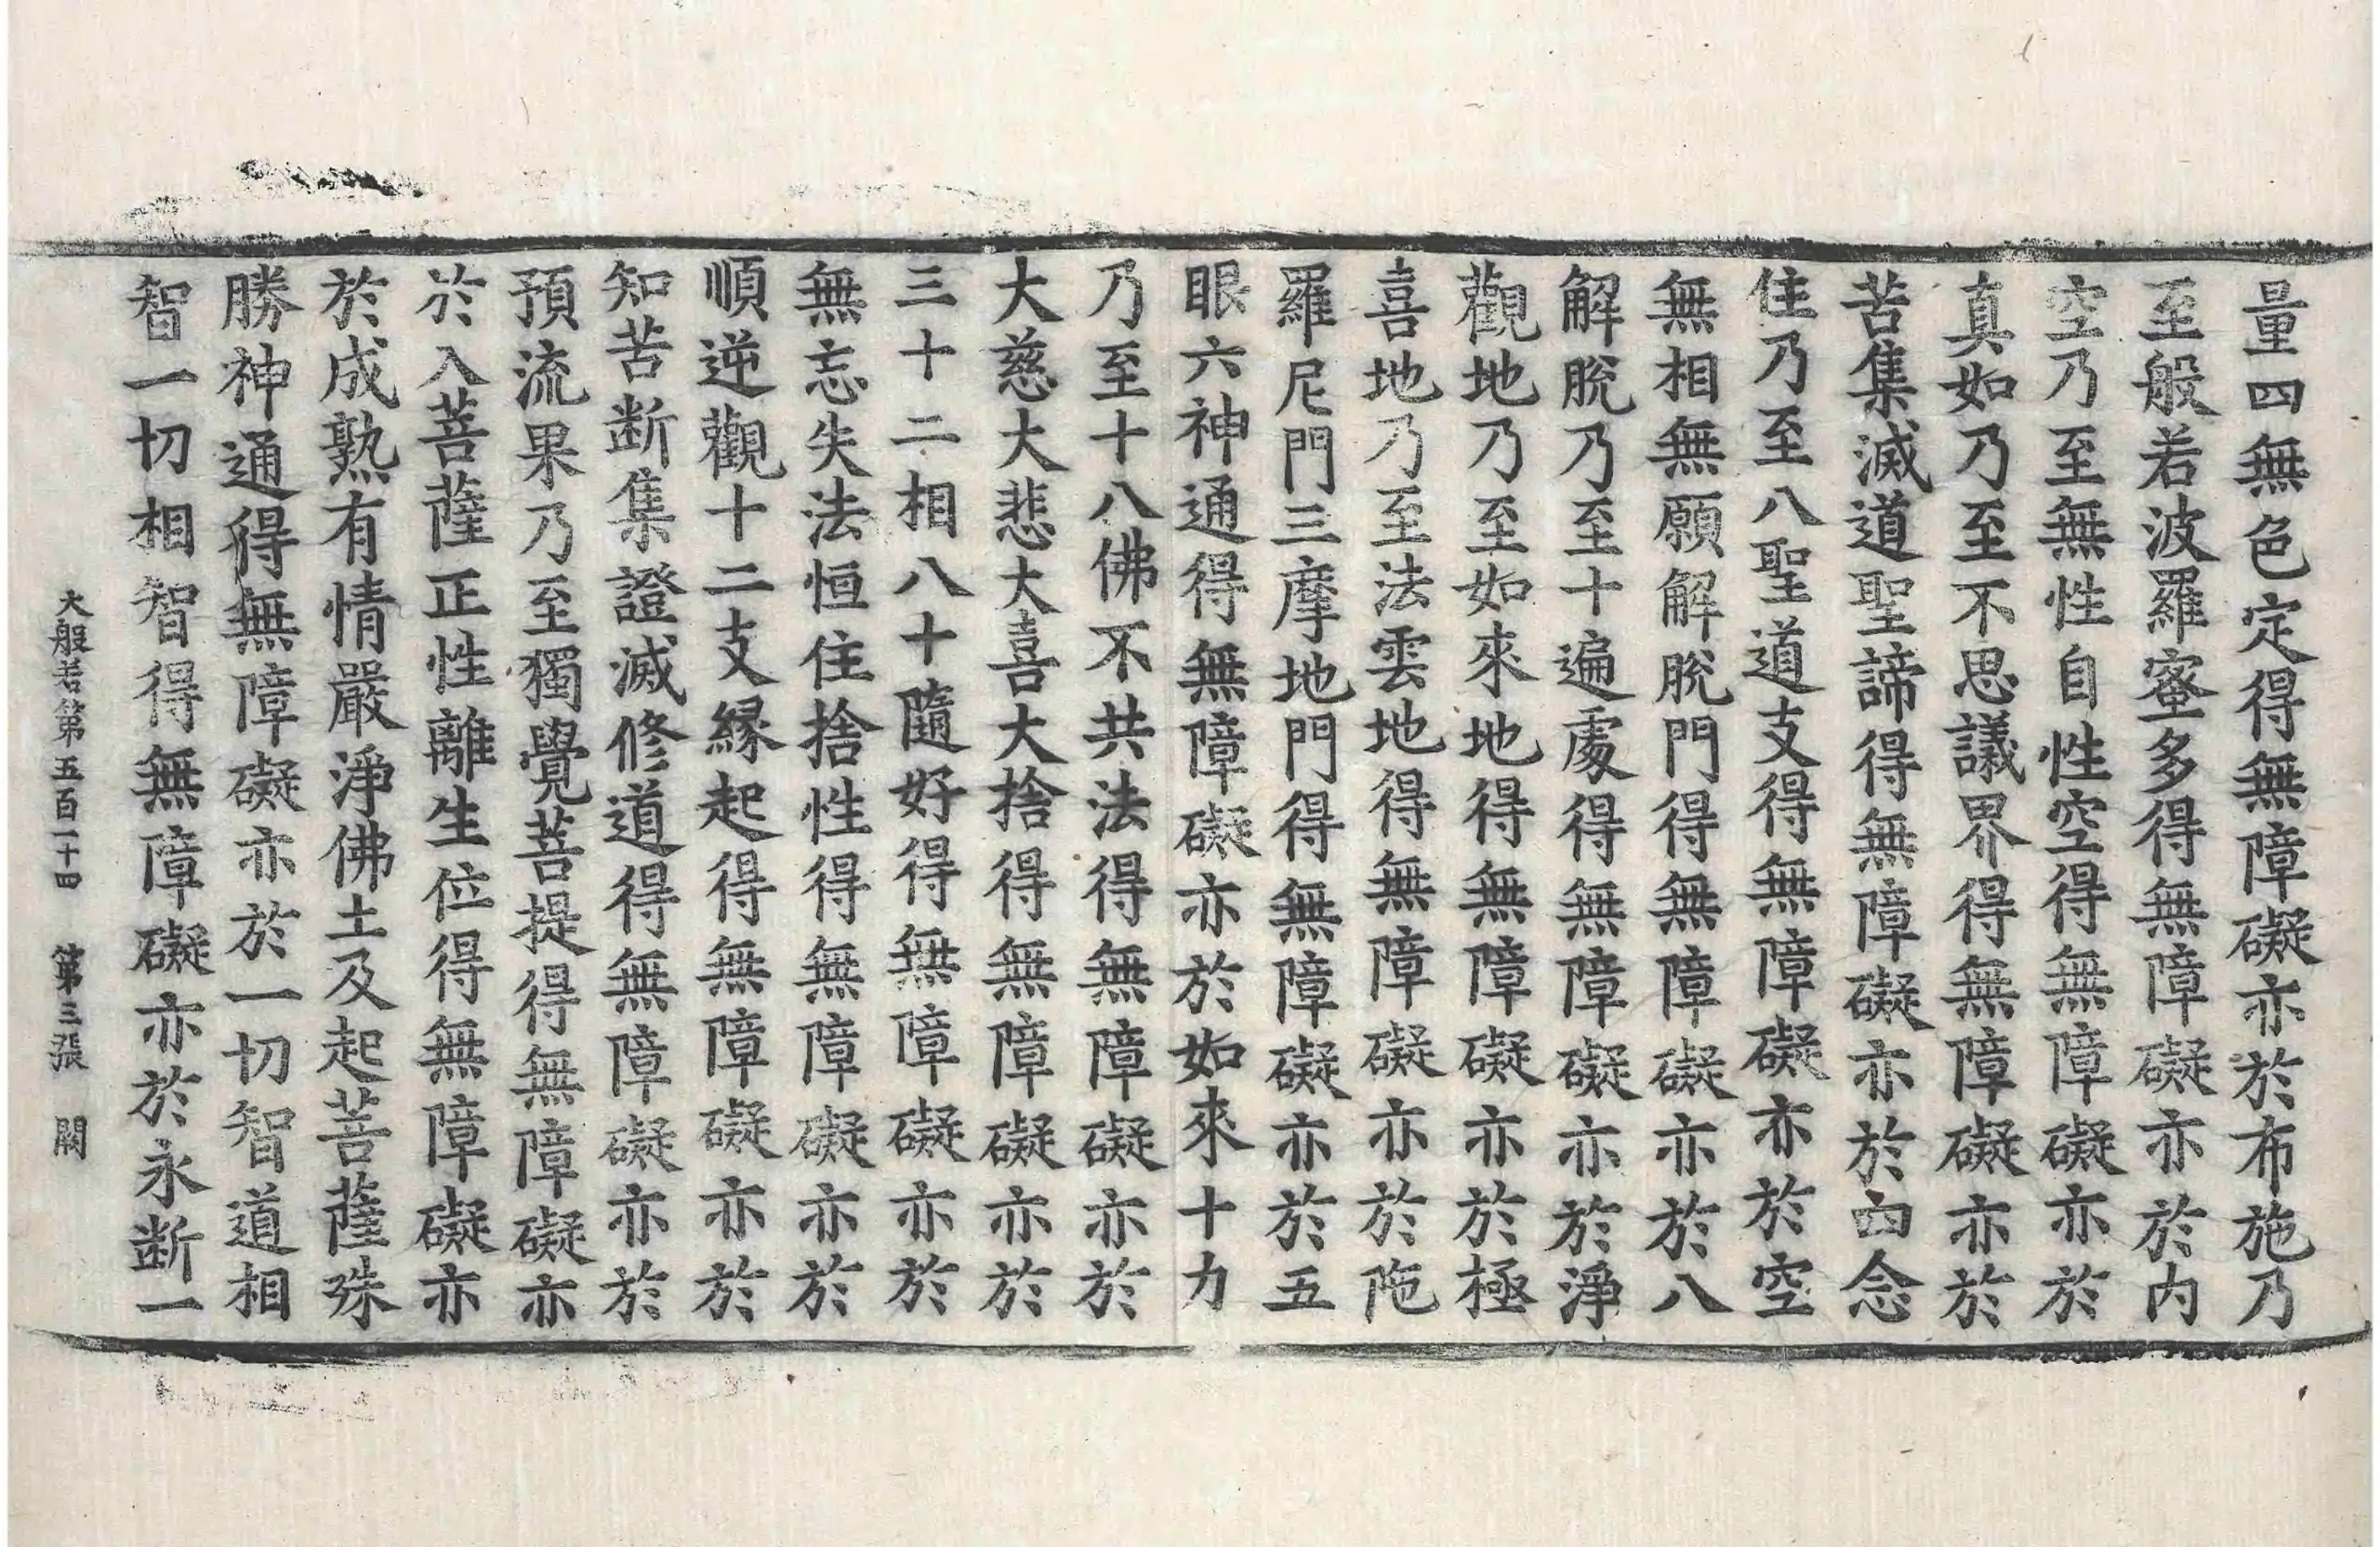 量四無色定得無障礙亦於布施乃
至般若波羅蜜多得無障礙亦於内
空乃至無性自性空得無障礙亦於
真如乃至不思議界得無障礙亦於
苦集滅道聖諦得無障礙亦於四念
住乃至八聖道支得無障礙亦於空
無相無願解脫門得無障礙亦於八
解脫乃至十遍處得無障礙亦於淨
觀地乃至如來地得無障礙亦於極
喜地乃至法雲地得無障礙亦於陁
羅尼門三摩地門得無障礙亦於五
眼六神通得無障礙亦於如來十力
乃至十八佛不共法得無障礙亦於
大慈大悲大喜大捨得無障礙亦於
三十二相八十隨好得無障礙亦於
無忘失法恒住捨性得無障礙亦於
順逆觀十二支緣起得無障礙亦於
知苦断集證滅修道得無障礙亦於
預流果乃至獨覺菩提得無障礙亦
於入菩薩正性離生位得無障礙亦
於成熟有情嚴淨佛土及起菩薩殊
勝神通得無障礙亦於一切智道相
智一切相智得無障礙亦於永断一
大般若第五百一十四 第三張 闕